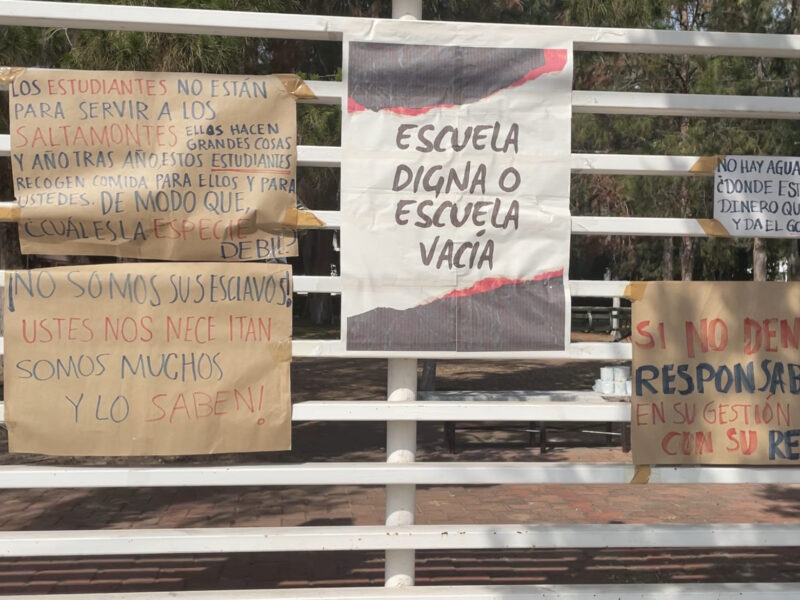 LOS ESTUDIANTES NO ESTÁN
PARA SERVIR A LOS
SALTAMONTES ELLOS HACEN
GRANDES COSAS
Y AÑO TRAS AÑO, ESTOS ESTUDIANTES
RECOGEN COMIDA PARA ELLOS Y PARA
USTEDES. DE MODO QUE,
¿CUÁL ES LA ESPECIE
DEBIL?
¡NO SOMOS SUS ESCLAVOS!
USTES NOS NECE ITAN
SOMOS MUCHOS
Y LO SABEN!
ESCUELA
DIGNA O
ESCUELA
VACÍA
NO HAY AGUA
¿DONDE ES
DINERO QU
Y DA EL GO
SI NO DEN
RESPONSAB
EN SU GESTIÓN
CON SU RE